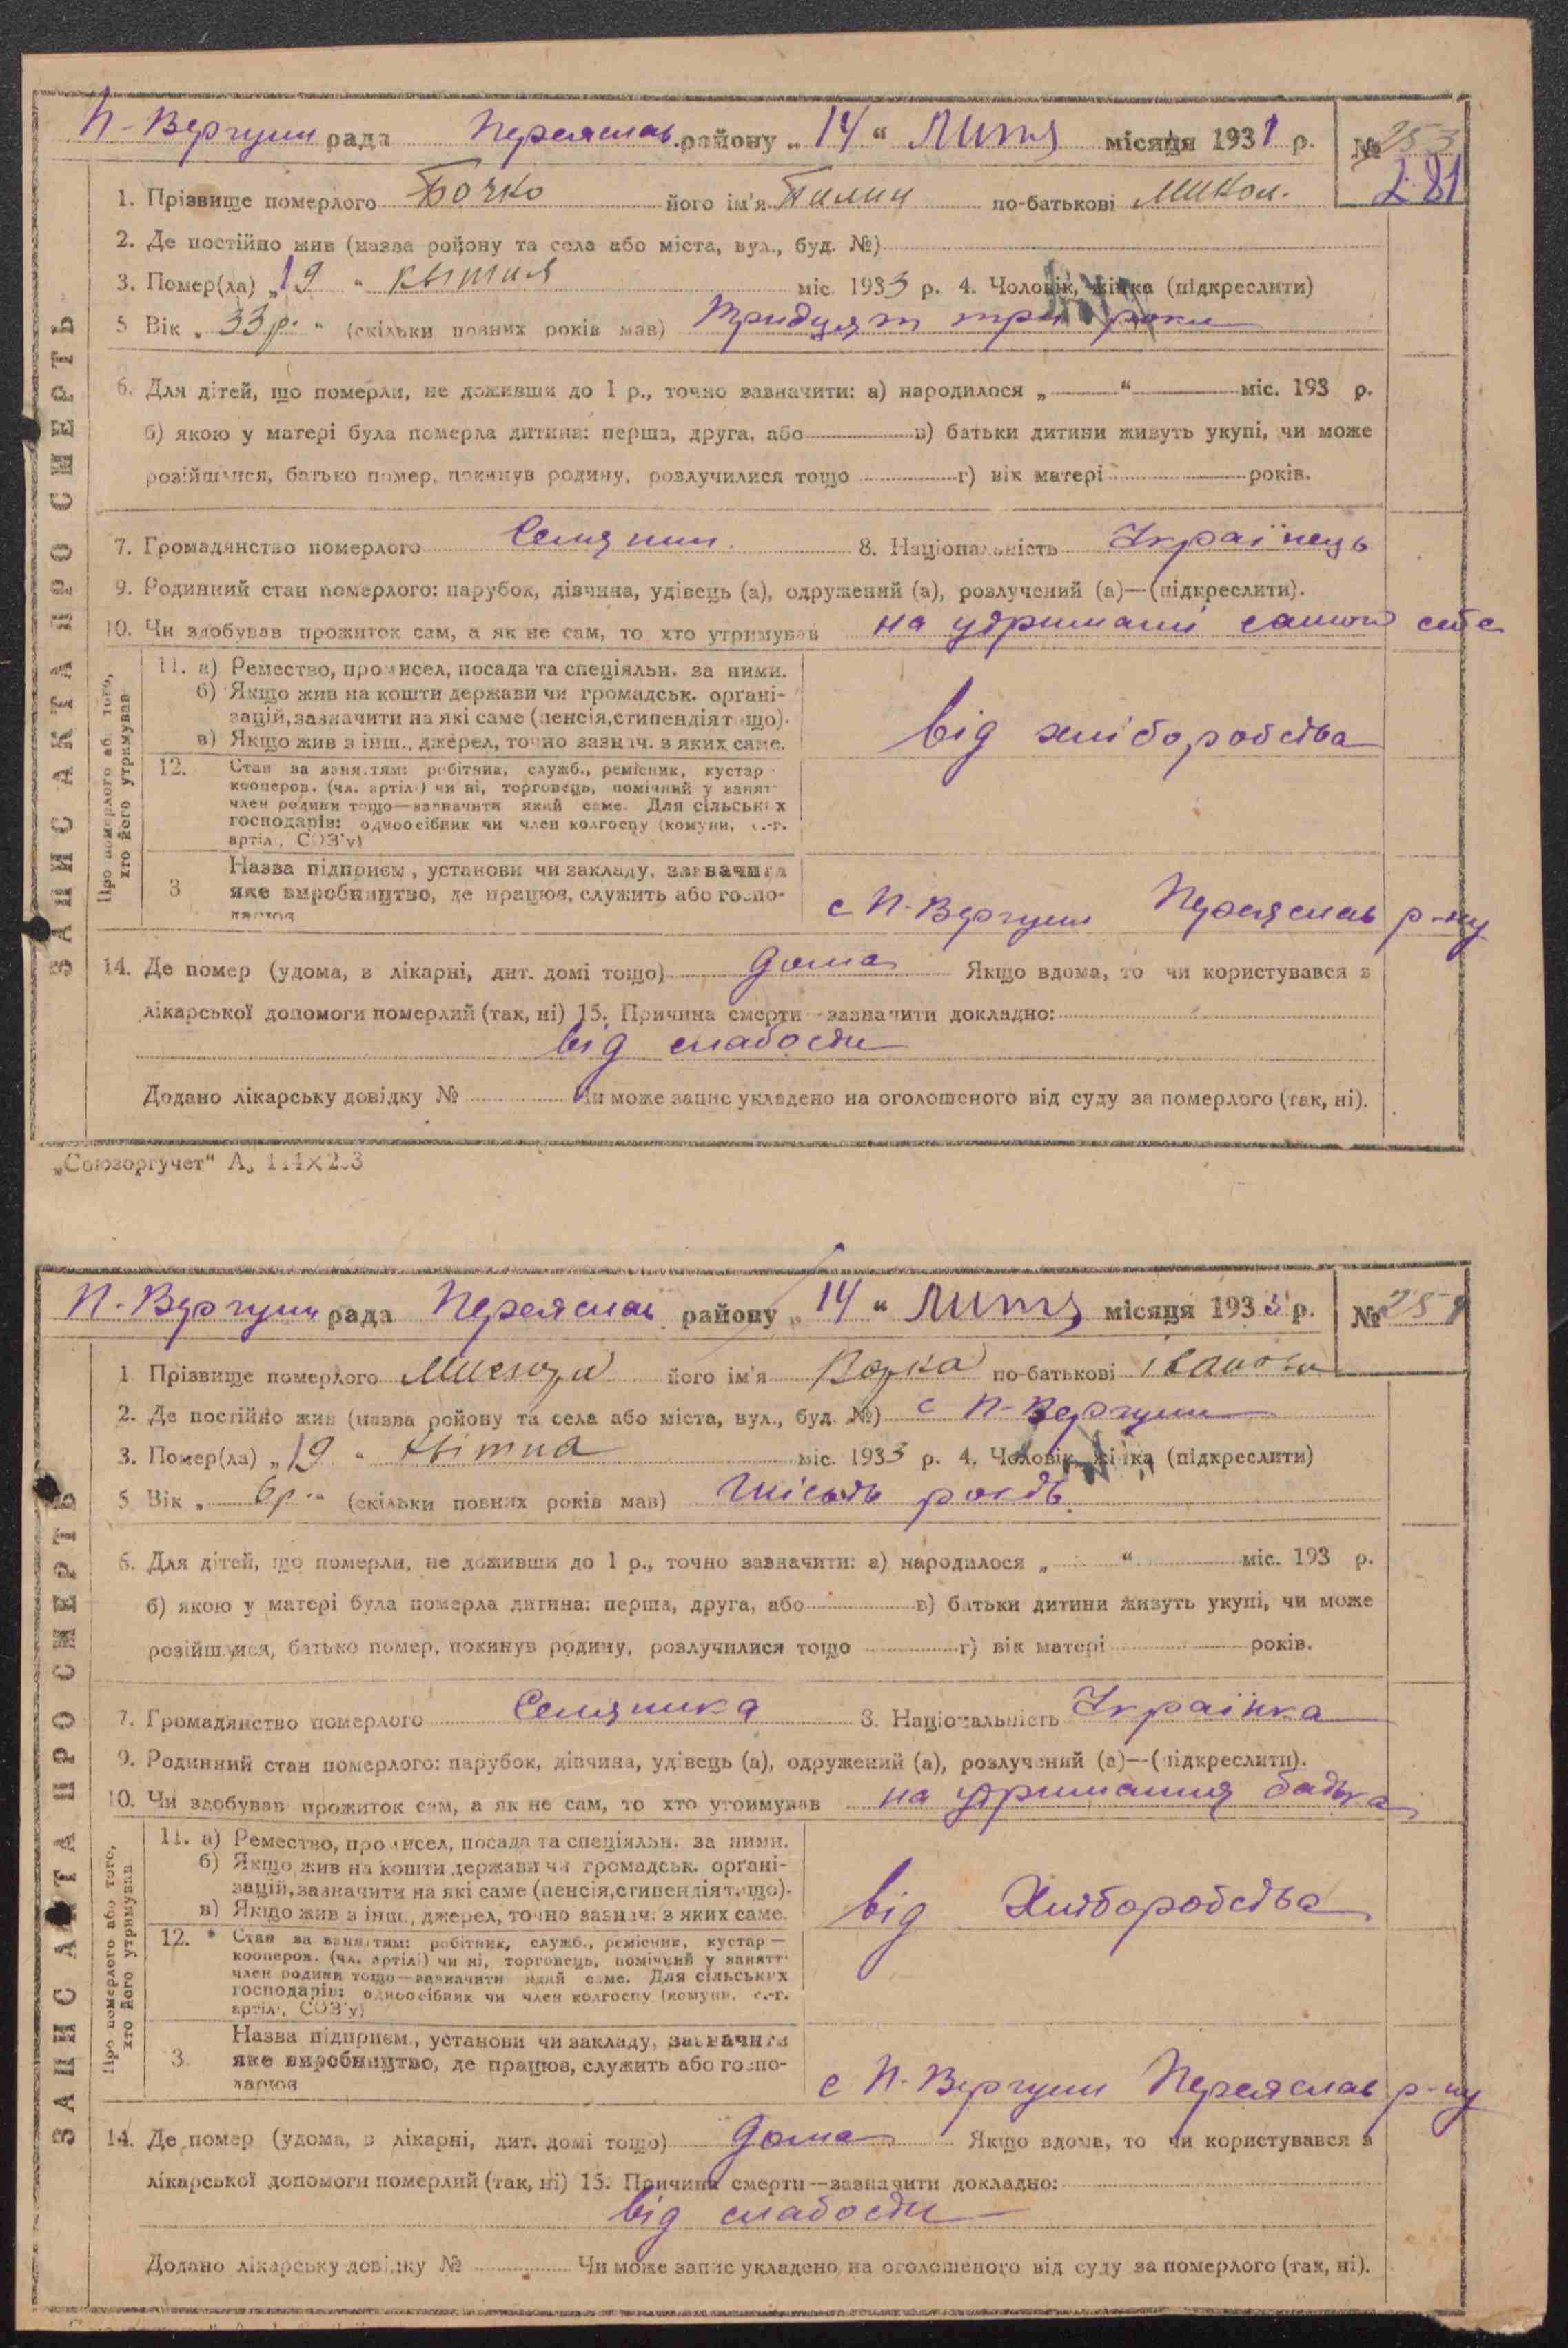 П-Вергуни рада Переяслав. району „ 14 “ Липня місяця 1933 р. № 253
281
1. Прізвище померлого Бочко його ім'я Пилип по-батькові Микол.
2. Де постійно жив (назва району та села або міста, вул., буд. №)
3. Помер(ла) „ 19 “ квітня міс. 1933 р. 4. Чоловік, жінка (підкреслити)
5 Вік „ 33 р. “ (скільки повних років мав) тридцят три роки
6. Для дітей, що померли, не доживши до 1 р., точно зазначити: а) народилося „ “ міс. 193 р.
б) якою у матері була померла дитина: перша, друга, або в) батьки дитини живуть укупі, чи може
розійшлися, батько помер, покинув родину, розлучилися тощо г) вік матері років.
7. Громадянство померлого Селянин. 8. Національність Українець
9. Родинний стан померлого: парубок, дівчина, удівець (а), одружений (а), розлучений (а)—(підкреслити).
10. Чи здобував прожиток сам, а як не сам, то хто утримував на удриманні самого себе
11. а) Ремество, промисел, посада та спеціяльн. за ними.
б) Якщо жив на кошти держави чи громадськ. органі-
зацій, зазначити на які саме (пенсія, стипендія тощо).
в) Якщо жив з інш., джерел, точно зазнач. з яких саме.
від хліборобства
12. Стан за заняттям: робітник, служб., ремісник, кустар
кооперов. (чл. артілі) чи ні, торговець, помічний у занят-
член родини тощо—зазначити який саме. Для сільських
господарів: одноосібник чи член колгоспу (комуни, с.-г.
артілі, СОЗ'у)
3 Назва підприєм., установи чи закладу, зазначити
яке виробництво, де працює, служить або госпо-
дарює
с П-Вергуни Переяслав р-ну
14. Де помер (удома, в лікарні, дит. домі тощо) дома Якщо вдома, то чи користувався з
лікарської допомоги померлий (так, ні) 15. Причина смерти—зазначити докладно:
від слабости
Додано лікарську довідку № Чи може запис укладено на оголошеного від суду за померлого (так, ні).
„Союзоргучет“
ЗАПИС АКТА ПРО СМЕРТЬ
Про померлого або того, хто його утримував
П-Вергуни рада Переяслав району „ 14 “ Липня місяця 1933 р. №
1 Прізвище померлого його ім'я по-батькові Іванова
2. Де постійно жив (назва району та села або міста, вул., буд. №) с П-Вергуни
3. Помер(ла) „ 19 “ квітня міс. 1933 р. 4. Чоловік, жінка (підкреслити)
5 Вік „ 6 р. “ (скільки повних років мав) шість
6. Для дітей, що померли, не доживши до 1 р., точно зазначити: а) народилося „ “ міс. 193 р.
б) якою у матері була померла дитина: перша, друга, або в) батьки дитини живуть укупі, чи може
розійшлися, батько помер, покинув родину, розлучилися тощо г) вік матері років.
7. Громадянство померлого Селяника 8. Національність Українка
9. Родинний стан померлого: парубок, дівчина, удівець (а), одружений (а), розлучений (а)—(підкреслити).
10. Чи здобував прожиток сам, а як не сам, то хто утримував на удримання
11. а) Ремество, промисел, посада та спеціяльн. за ними.
б) Якщо жив на кошти держави чи громадськ. органі-
зацій, зазначити на які саме (пенсія, стипендія тощо).
в) Якщо жив з інш., джерел, точно зазнач. з яких саме.
від Хліборобства
12. Стан за заняттям: робітник, служб., ремісник, кустар —
кооперов. (чл. артілі) чи ні, торговець, помічний у занятт-
член родини тощо—зазначити який саме. Для сільських
господарів: одноосібник чи член колгоспу (комуни, с.-г.
артілі, СОЗ'у)
3. Назва підприєм., установи чи закладу, зазначити
яке виробництво, де працює, служить або госпо-
дарює
с П-Вергуни Переяслав р-ну
14. Де помер (удома, в лікарні, дит. домі тощо) дома Якщо вдома, то чи користувався з
лікарської допомоги померлий (так, ні) 15. Причина смерти—зазначити докладно:
від слабости
Додано лікарську довідку № Чи може запис укладено на оголошеного від суду за померлого (так, ні).
ЗАПИС АКТА ПРО СМЕРТЬ
Про померлого або того, хто його утримував